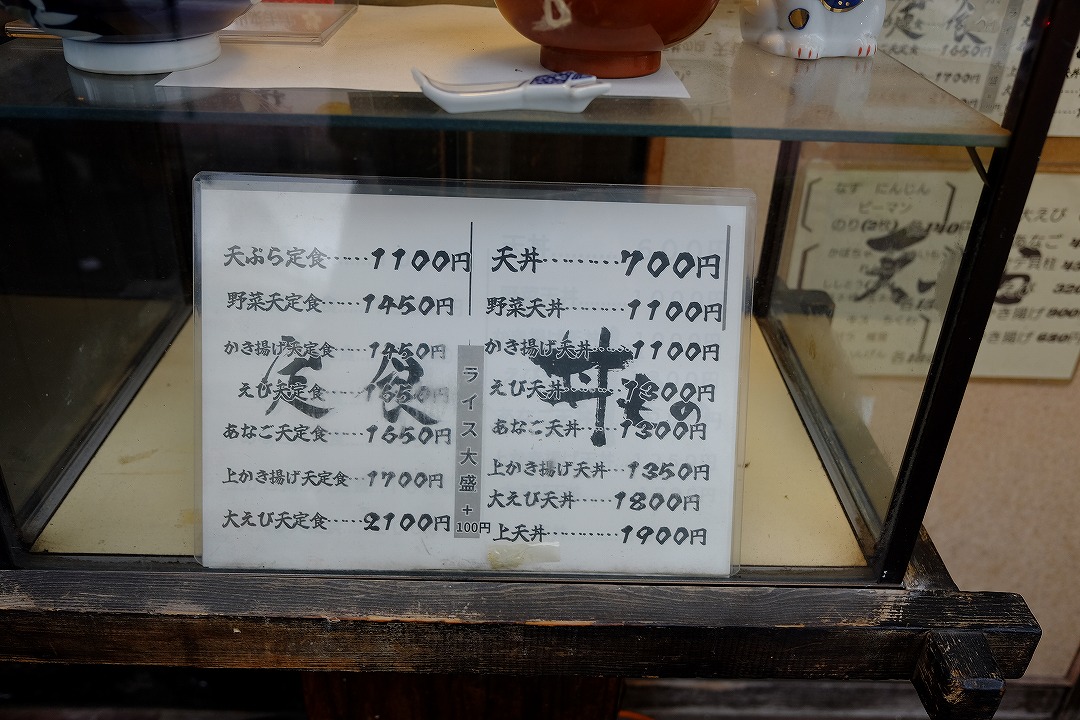 定食
天ぷら定食……1100円
野菜天定食……1450円
かき揚げ天定食……1450円
えび天定食……1650円
あなご天定食……1650円
上かき揚げ天定食…1700円
大えび天定食……2100円
ライス大盛+100円
丼もの
天丼………700円
野菜天丼………1100円
かき揚げ天丼……1100円
えび天丼………1300円
あなご天丼……1300円
上かき揚げ天丼…1350円
大えび天丼………1800円
上天丼…………1900円
定食
1650円
1700円
なす にんじん
ピーマン
のり(2枚) 各110円
大えび